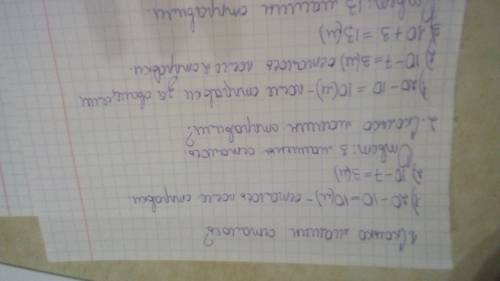 1. Сколько машин осталось?
1) 20 - 10 = 10(м) - осталось после отправки.
2) 10 - 7 = 3(м)
Ответ: 3 машины осталось.
2. Сколько машин отправили?
1) 20 - 10 = 10(м) - после отправки за овощами
2) 10 - 7 = 3(м) осталось после отправки.
3) 10 + 3 = 13(м)
Ответ: 13 машин отправили.